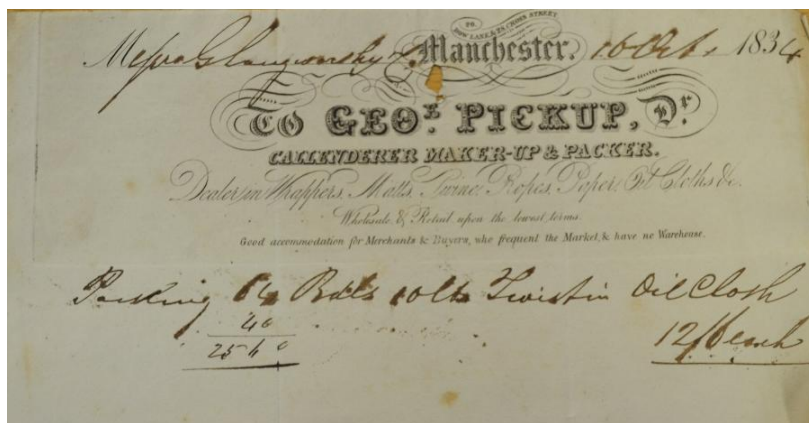 NO.
ROW LANE & 28, CROSS STREET
Messrs Manchester. 16 Octr. 1834
TO GEOE. PICKUP, Dr.
CALLENDERER MAKER-UP & PACKER.
Dealer in Wrappers, Matts, Twine, Ropes, Paper, Oil Cloths &c.
Wholesale & Retail upon the lowest terms.
Good accommodation for Merchants & Buyers, who frequent the Market, & have no Warehouse.
Packing 64 Twist in Oil Cloth
40 12/6 each